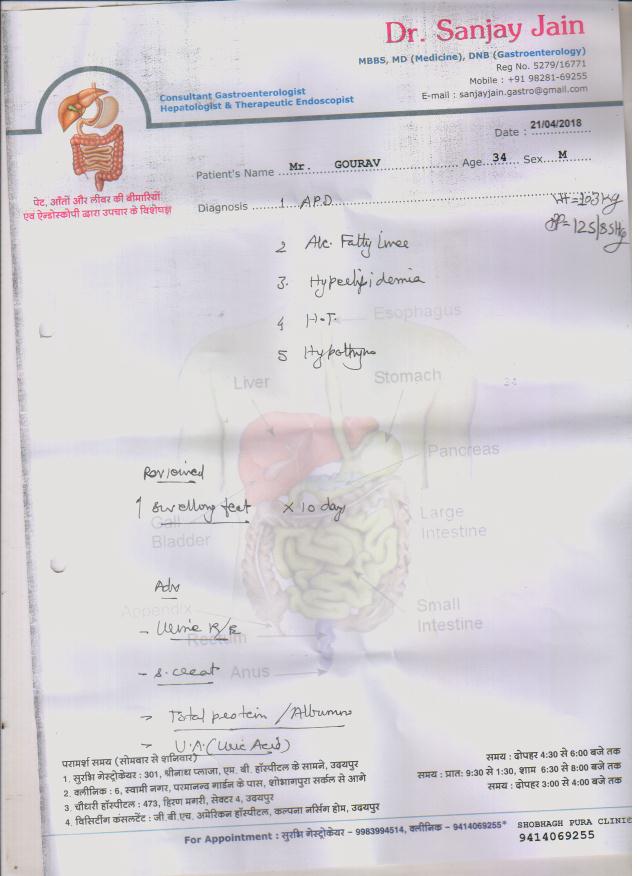 Dr. Sanjay Jain
MBBS, MD (Medicine), DNB (Gastroenterology)
Reg No. 5279/16771
Mobile : +91 98281-69255
E-mail : sanjayjain.gastro@gmail.com
Consultant Gastroenterologist
Hepatologist & Therapeutic Endoscopist
Date : 21/04/2018
पेट, आँतों और लीवर की बीमारियों
एवं ऐन्डोस्कोपी द्वारा उपचार के विशेषज्ञ
Patient's Name Mr. GOURAV Age 34 Sex M
Diagnosis 1 A.P.D Wt = 103 kg
BP = 125/85 Hg
2 Alc. Fatty Liver
3. Hyperlipidemia
Esophagus
4 H.T.
5 Hypothyro
Liver
Stomach
Pancreas
Reviewed
↑ swelling feet x 10 days
Gall
Bladder
Large
Intestine
Adv
Appendix
Small
Intestine
- Urine R/E
Rectum
- S. creat
Anus
→ Total protein / Albumin
→ U.A. (Uric Acid)
परामर्श समय (सोमवार से शनिवार)
1. सुरभि गेस्ट्रोकेयर : 301, श्रीनाथ प्लाजा, एम. बी. हॉस्पीटल के सामने, उदयपुर समय : दोपहर 4:30 से 6:00 बजे तक
2. क्लीनिक : 6, स्वामी नगर, परमानन्द गार्डन के पास, शोभागपुरा सर्कल से आगे समय : प्रात: 9:30 से 1:30, शाम 6:30 से 8:00 बजे तक
3. चौधरी हॉस्पीटल : 473, हिरण मगरी, सेक्टर 4, उदयपुर समय : दोपहर 3:00 से 4:00 बजे तक
4. विसिटींग कंसलटेंट : जी.बी.एच. अमेरिकन हॉस्पीटल, कल्पना नर्सिंग होम, उदयपुर
For Appointment : सुरभि गेस्ट्रोकेयर – 9983994514, क्लीनिक – 9414069255* SHOBHAGH PURA CLINIC
9414069255